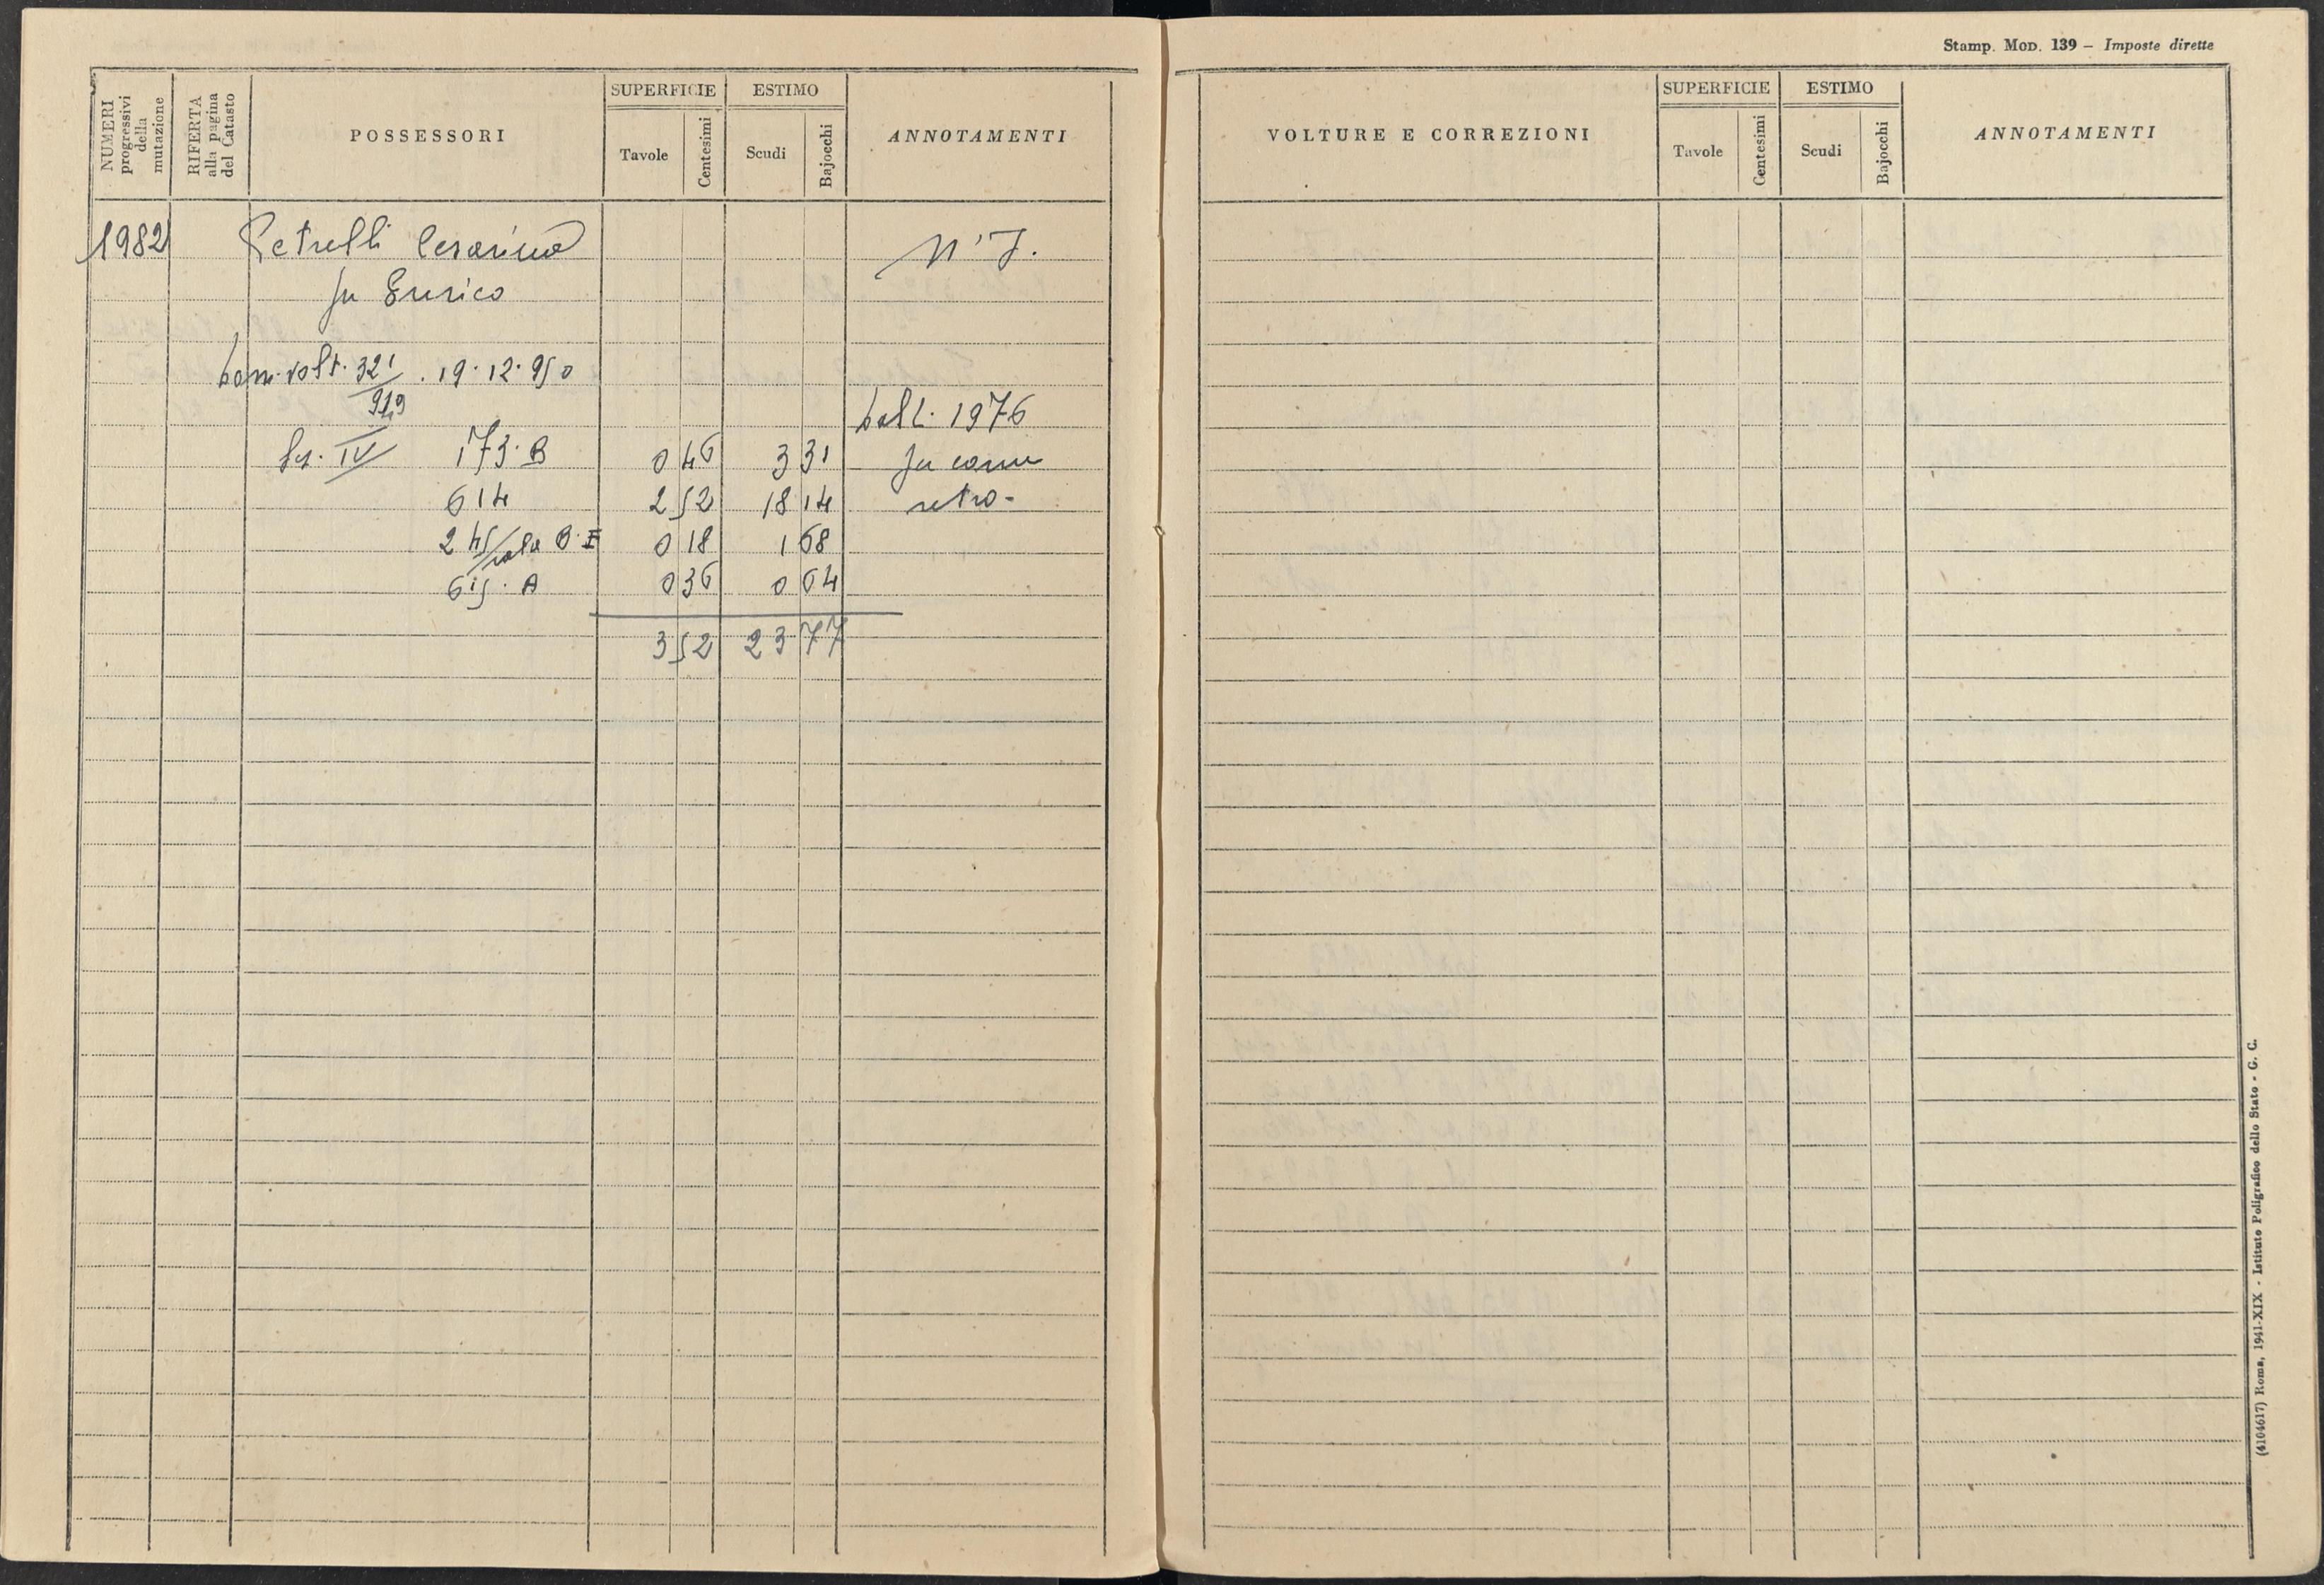 NUMERI progressivi della mutazione
RIFERTA alla pagina del Catasto
POSSESSORI
SUPERFICIE
Tavole
Centesimi
ESTIMO
Scudi
Bajocchi
ANNOTAMENTI
1982 Petrelli Cesarina
fu Enrico
volt. 321 . 19.12.950
919
dall. 1976
Sez. IV 173.B 0 46 3 31 fu come
614 2 52 18 14 retro-
245/ B.I 0 18 1 68
615.A 0 36 0 64
3 52 23 77
Stamp. Mod. 139 – Imposte dirette
VOLTURE E CORREZIONI
SUPERFICIE
Tavole
Centesimi
ESTIMO
Scudi
Bajocchi
ANNOTAMENTI
(4104617) Roma, 1941-XIX - Istituto Poligrafico dello Stato - G. C.